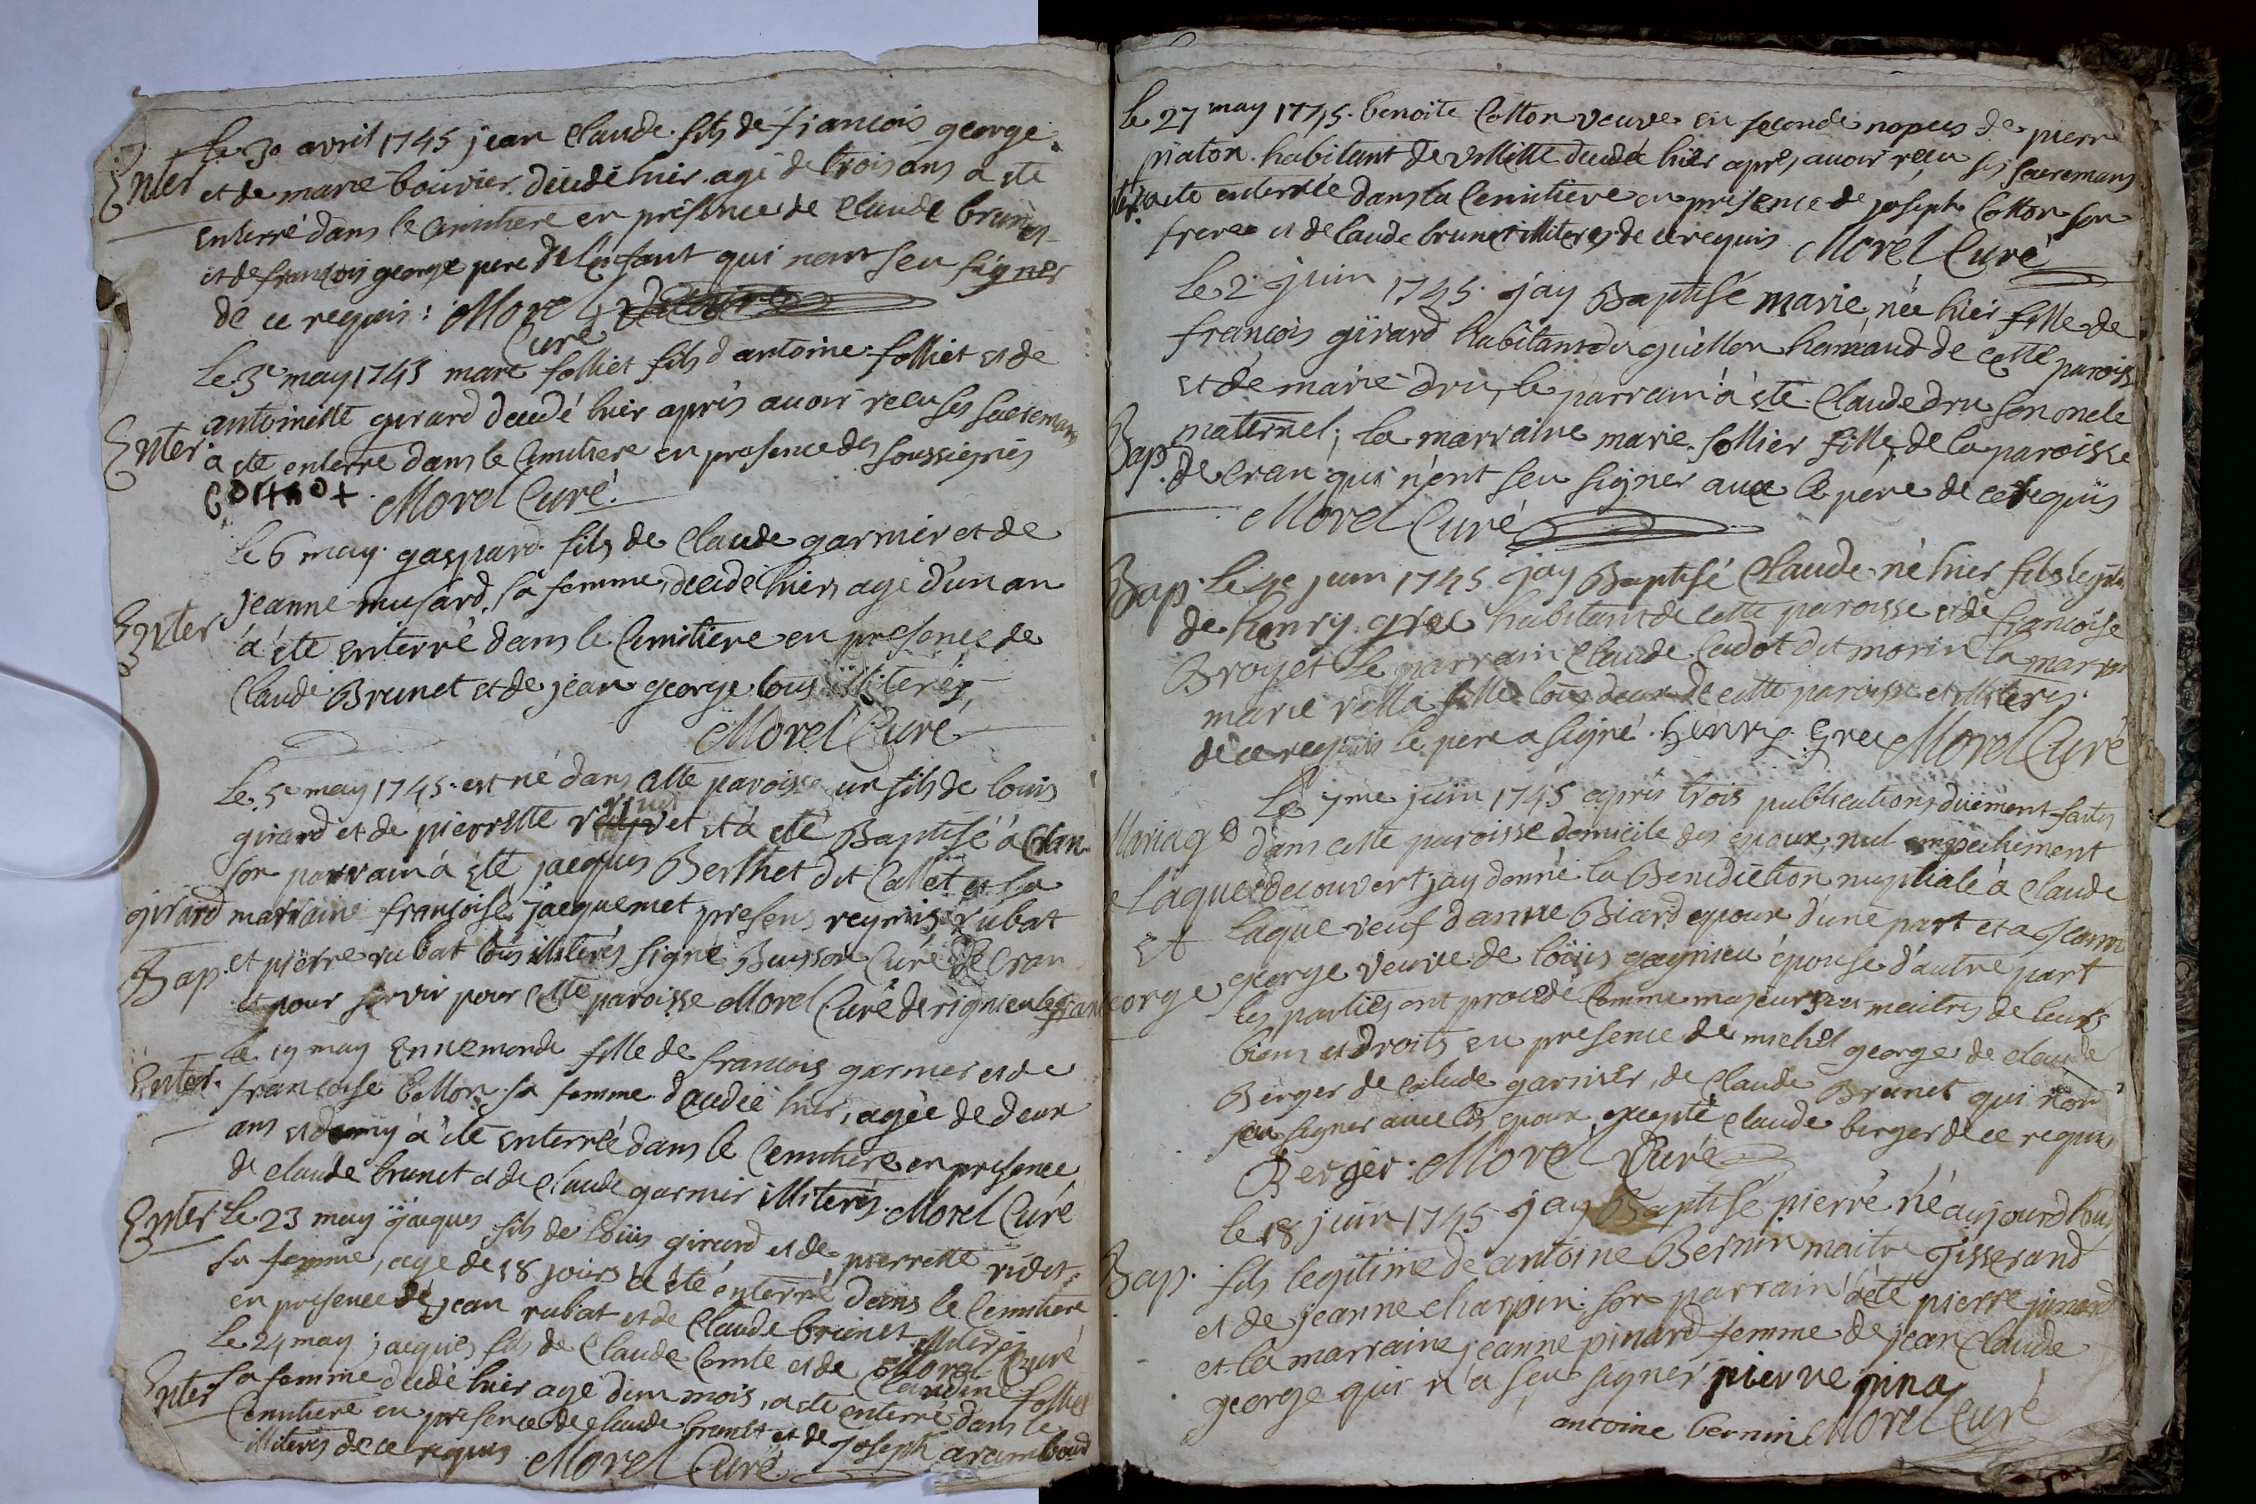 Le 30 avril 1745 jean Claude fils de françois george
Enter et de marie bouvier decede hier agé de trois ans a ete
enterré dans le Cimitiere en presence de Claude brunet
et de françois george pere de l'enfant qui n'ont seu signer
de ce requis : Morel
Curé
Le 3e may 1745 marc folliet fils d'antoine folliet et de
antoinette girard decedé hier après avoir recu ses sacremans
Enter. a ete enterré dans le Cimitiere en presence des soussignés
Morel Curé.
Le 6 may gaspard fils de Claude garnier et de
jeanne musard sa femme, decedé hier, agé d'un an
Enter à été enterré dans le Cimitiere en presence de
Claude Brunet et de jean george tous illiterés,
Morel Curé
Le 5e may 1745 est né dans cette paroisse un fils de louis
girard et de pierrette et à été Baptisé à Cran
son parrain à été jacques Berthet dit Callet et la
girard marraine françoise jacquemet presens requis rubat
Bap. et pierre rubat tous illiterés signé Buisson Curé de Cran
et pour servir pour cette paroisse Morel Curé de rignieu le franc
le 19 may Ennemonde fille de françois garnier et de
Enter. françoise Cotton sa femme decedée hier, agée de deux
ans et demy à été enterrée dans le Cemitiere en presence
de claude brunet et de Claude garnier illiterés. Morel Curé
Enter le 23 may jaques fils de Loüis girard et de pierrette ridet
sa femme, agé de 18 jours a été enterré dans le Cemitiere
en presence de jean rubat et de Claude brunet illiterés
Morel Curé
Le 24 may jacques fils de Claude Comte et de Claudine folliet
Enter sa femme decedé hier agé d'un mois, a ete enterré dans le
Cemitiere en presence de Claude brunet et de joseph arambourd
illiterés de ce requis Morel Curé
Le 27 may 1745. benoite Cotton veuve en seconde nopces de pierre
piaton habitant de decedée hier après avoir reçu ses sacremans
a ete enterrée dans la Cemitiere en presence de joseph Cotton son
frere et de Claude brunet illiterés de ce requis Morel Curé
Le 2e juin 1745 jay Baptisé marie née hier fille de
françois girard habitant du guillon hameaud de cette paroisse
et de marie dru, le parrain à été Claude dru son oncle
maternel; la marraine marie follier fille de la paroisse
Bap. de Cran qui n'ont seu signer avec le pere de ce requis
Morel Curé
Bap. Le 4e juin 1745 jay Baptisé Claude né hier fils legit
de henry grec habitant de cette paroisse et de françoise
Broyet le parrain Claude Cadot dit morin la marraine
marie fille tous deux de cette paroisse et illiterés
de ce requis le pere a signé. henry grec Morel Curé
Le 7me juin 1745 après trois publications düement faites
Mariage dans cette paroisse domicile des epoux, nul empechement
Laque decouvert jay donné la Benediction nuptiale à Claude
Laque veuf d'anne Biard epoux d'une part et a Jeanne
Et
george george veuve de loüis gagnieu épouse d'autre part
les parties ont procedé Comme majeurs et maitres de leurs
biens et droits en presence de michel george de claude
Berger de Calude garnier, de Claude Brunet qui n'ont
seu signer avec les epoux excepté Claude berger de ce requis
Berger. Morel Curé
le 18 juin 1745 jay Baptisé pierre né aujourdhuy
Bap. fils legitime de antoine Bernin maitre Tisserand
et de jeanne charpin son parrain à été pierre pinard
et la marraine jeanne pinard femme de jean Claude
george qui n'a seu signer pierre pina
antoine bernin Morel Curé